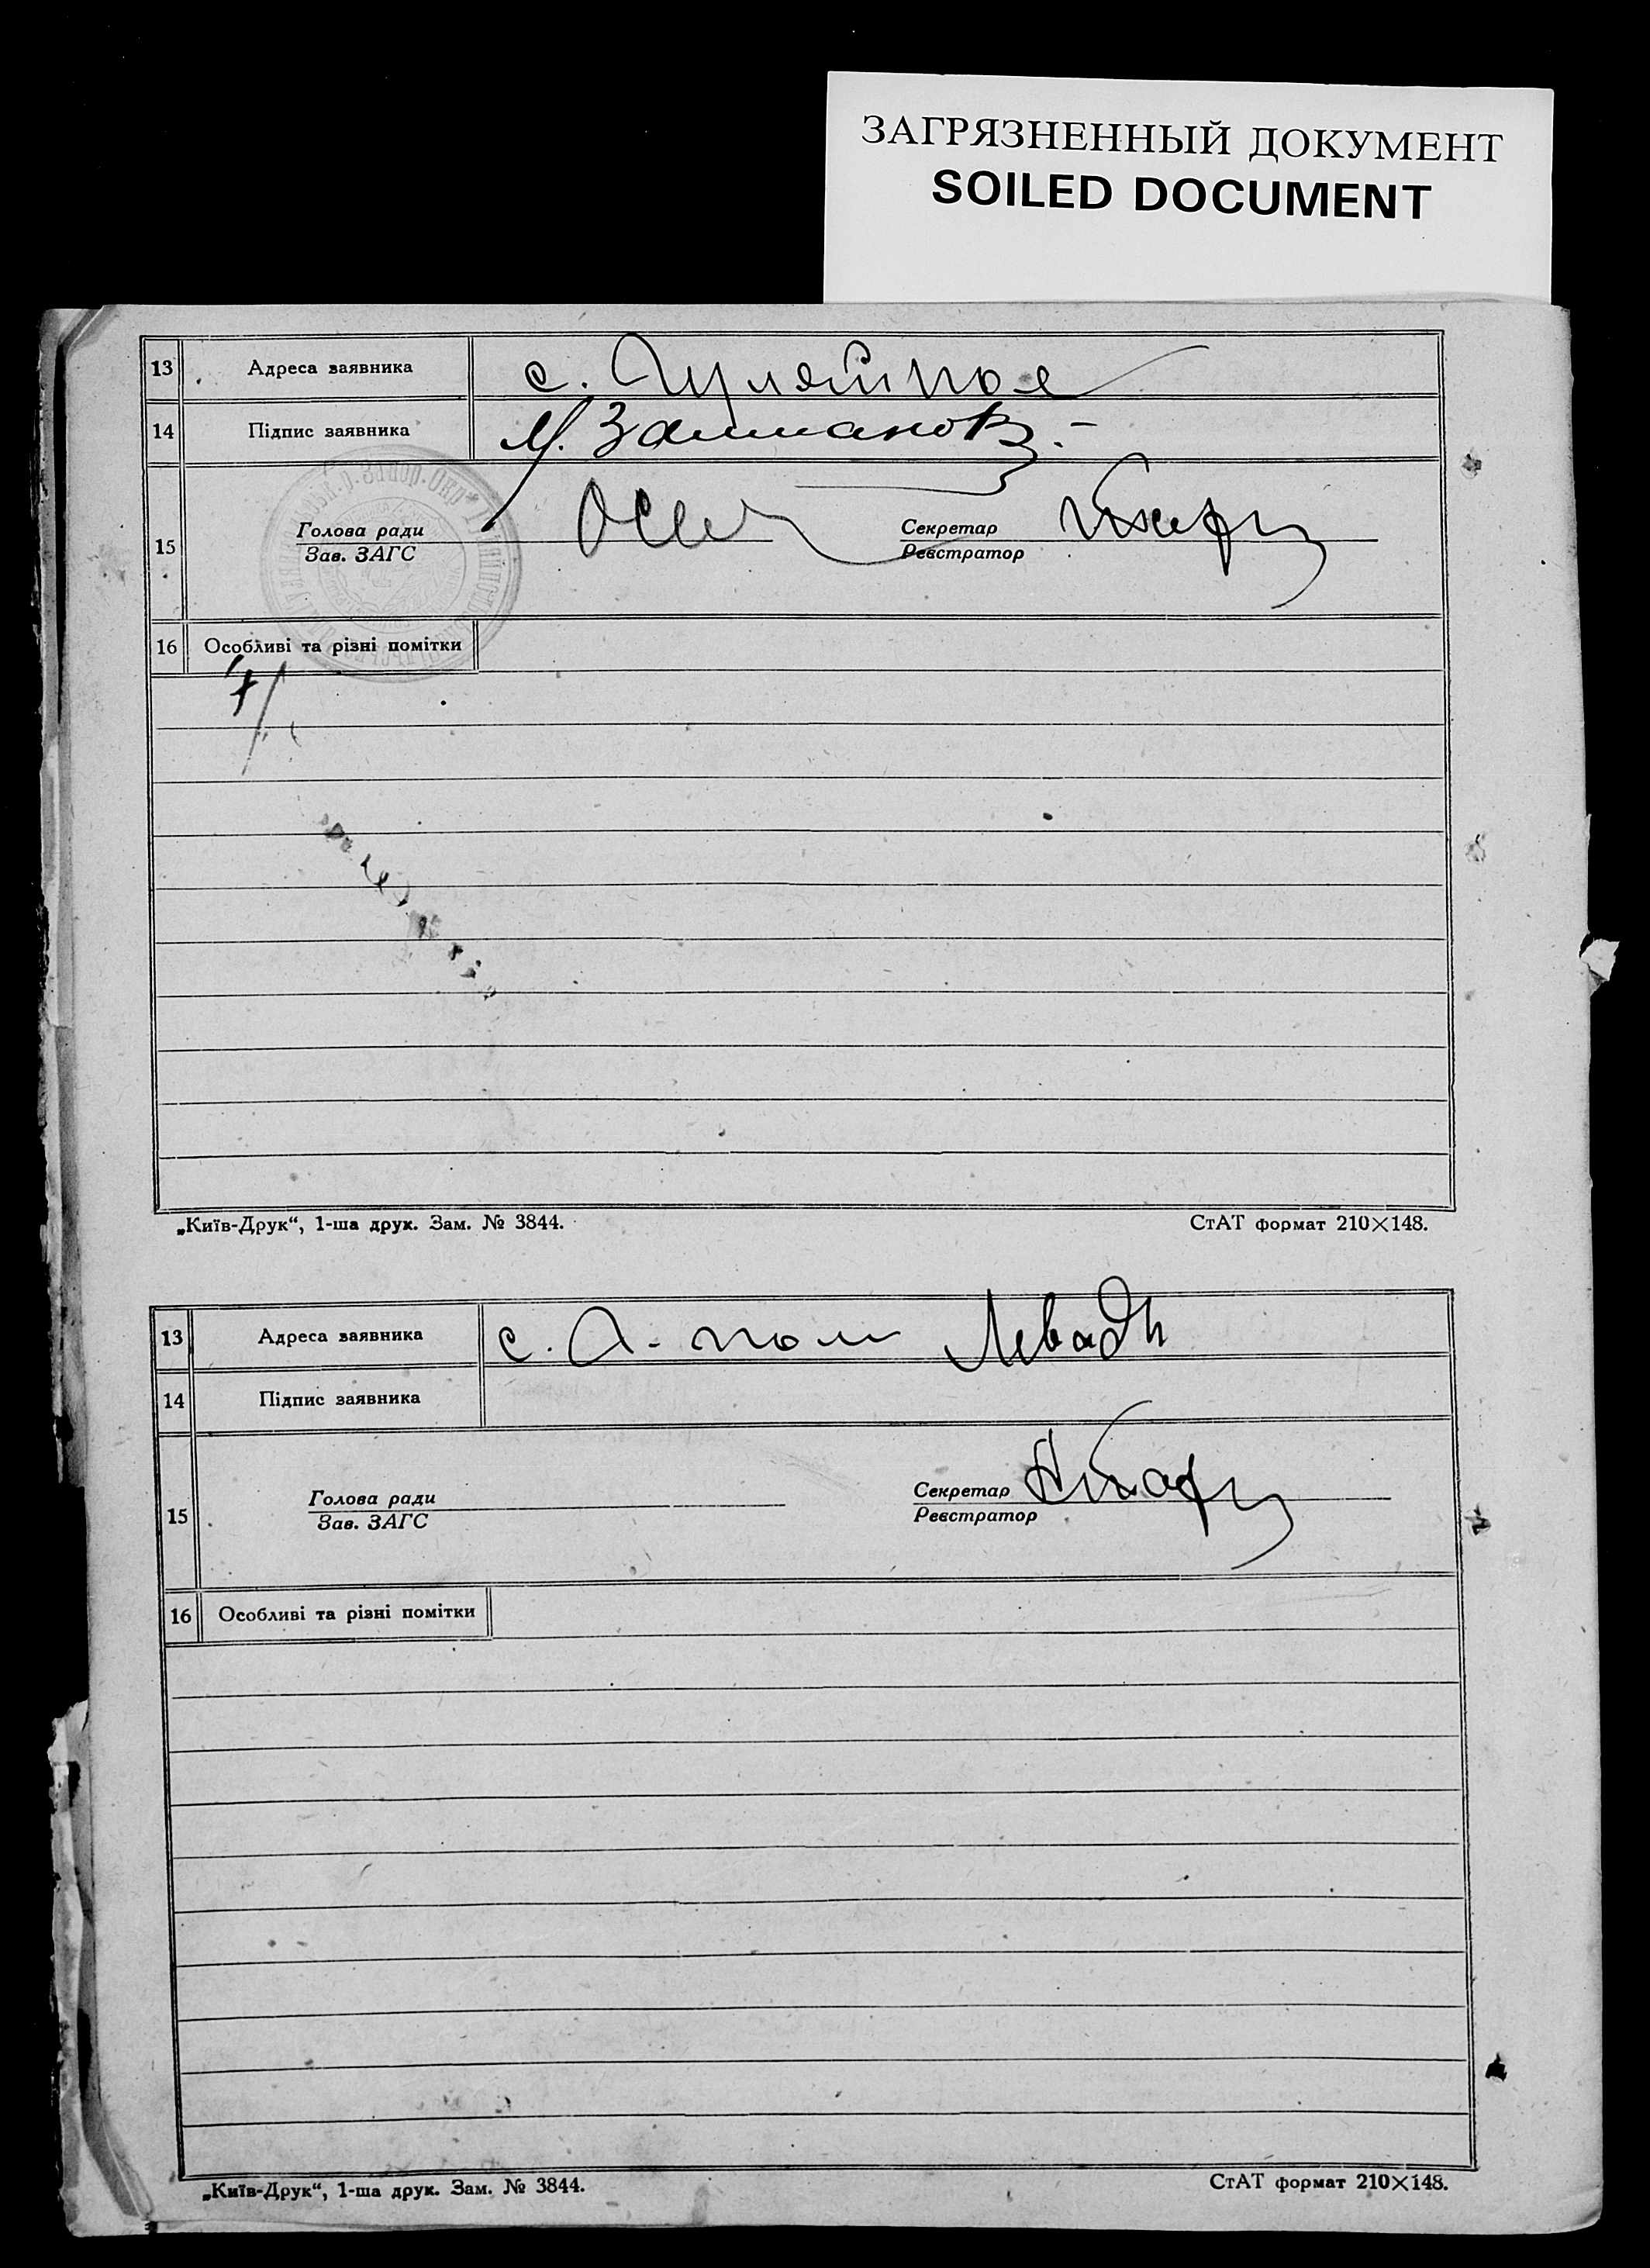 ЗАГРЯЗНЕННЫЙ ДОКУМЕНТ
SOILED DOCUMENT
13 Адреса заявника с. Гуляйполе
14 Підпис заявника М.
15 Голова ради Секретар
Зав. ЗАГС Реєстратор
16 Особливі та різні помітки
„Київ-Друк“, 1-ша друк. Зам. № 3844. СтАТ формат 210×148.
13 Адреса заявника с. Г-поле Левади
14 Підпис заявника
15 Голова ради Секретар
Зав. ЗАГС Реєстратор
16 Особливі та різні помітки
„Київ-Друк“, 1-ша друк. Зам. № 3844. СтАТ формат 210×148.